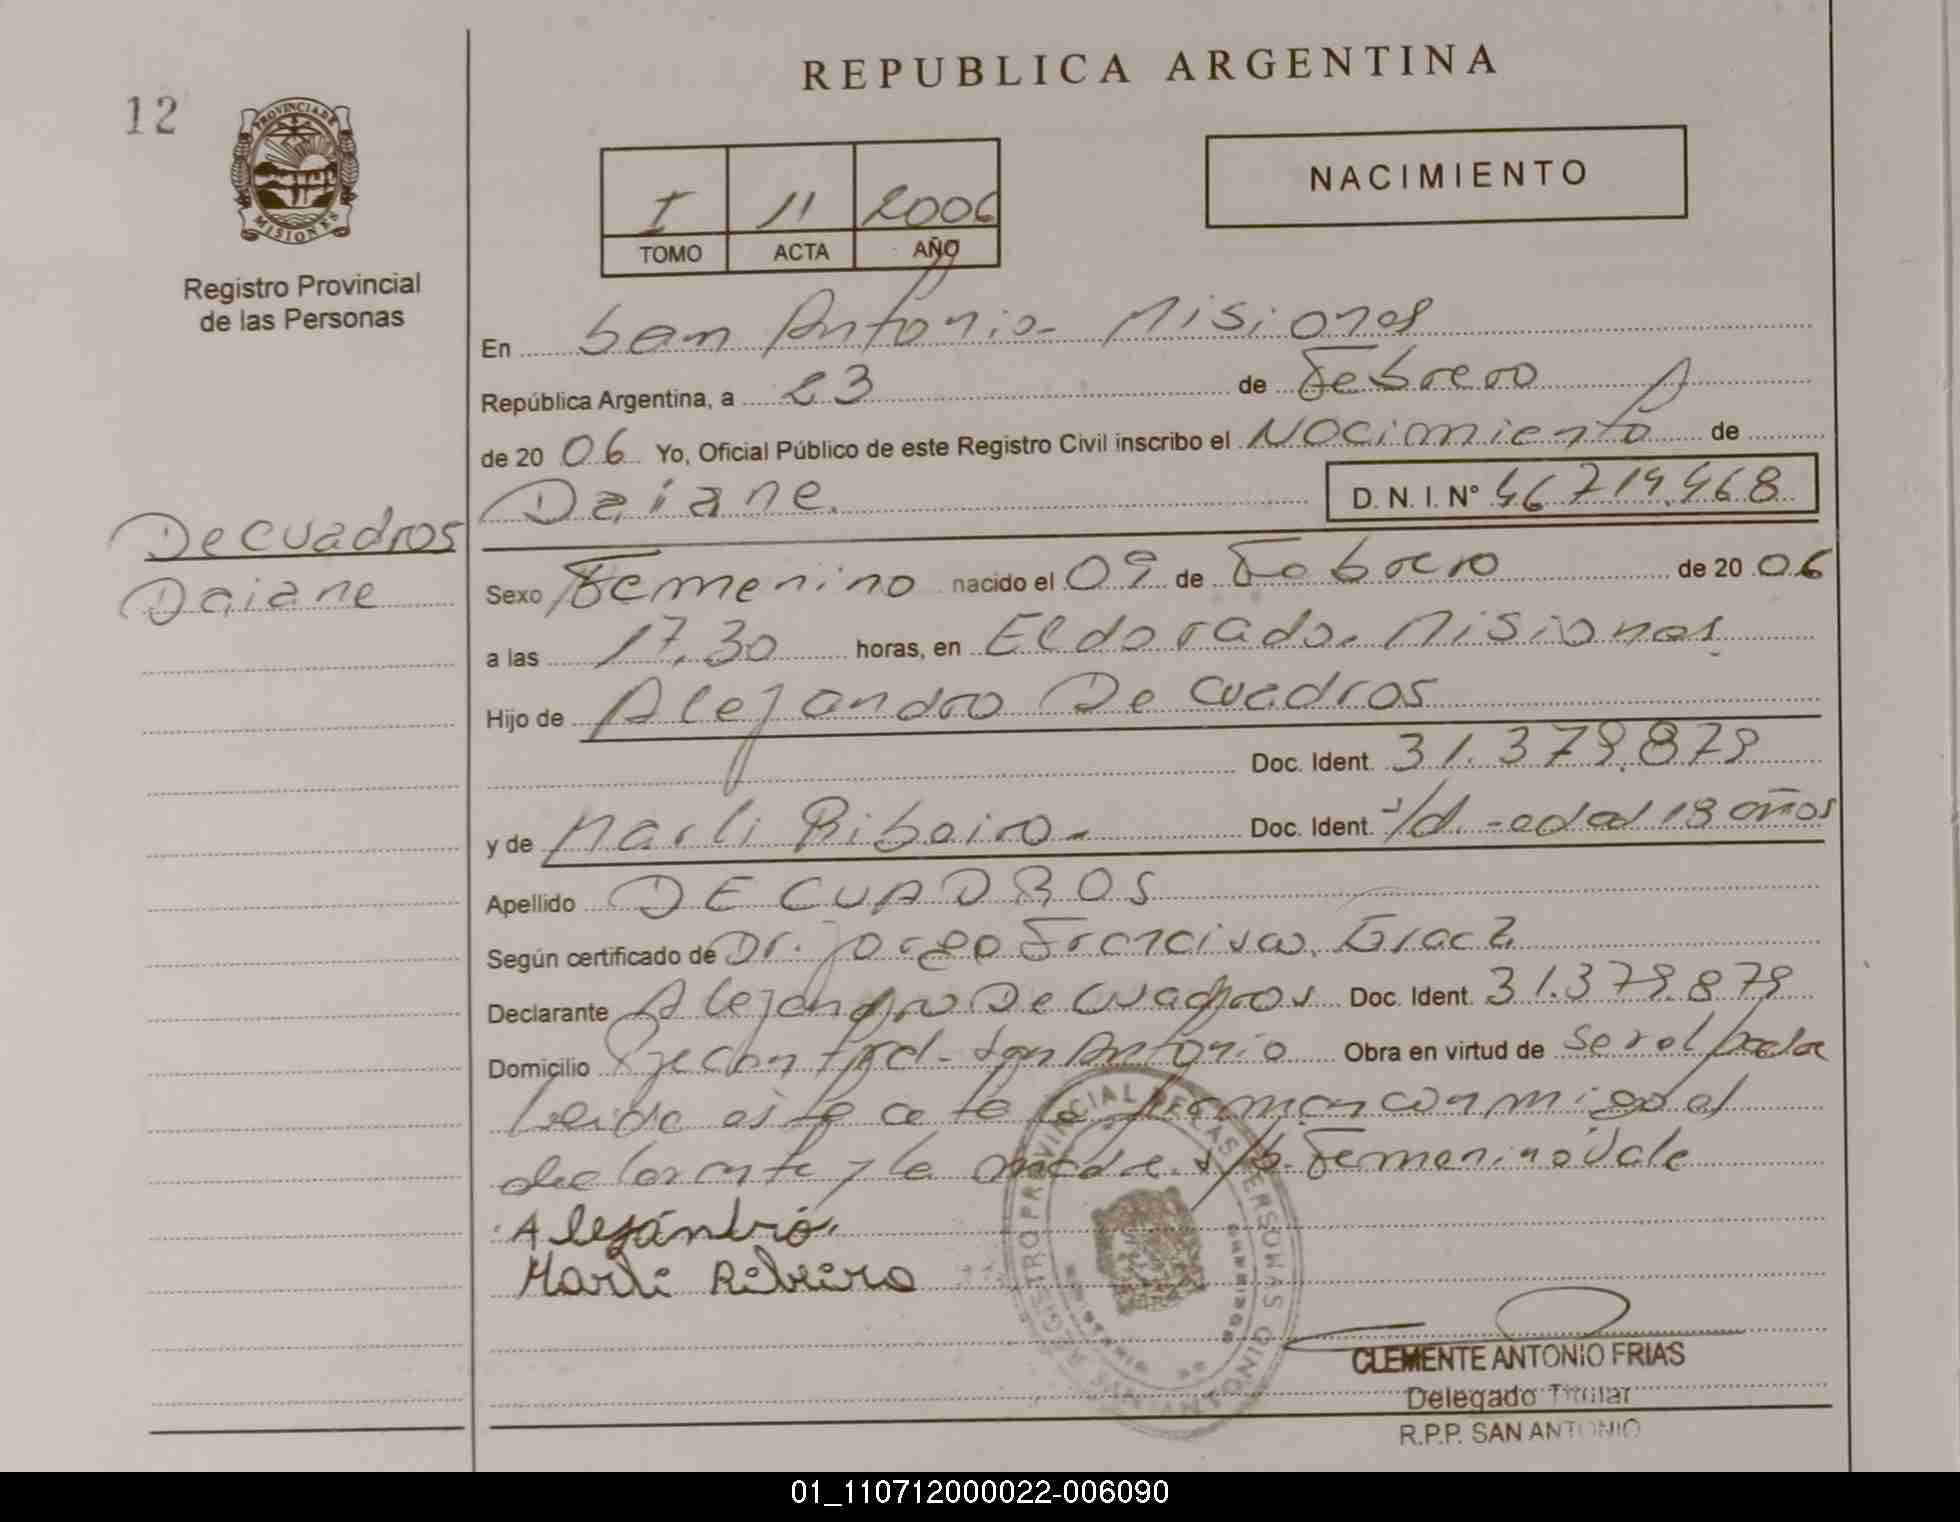 REPUBLICA ARGENTINA
12
PROVINCIA DE
MISIONES
Registro Provincial
de las Personas
I 11 2006
TOMO ACTA AÑO
NACIMIENTO
En San Antonio - Misiones
República Argentina, a 23 de Febrero
de 2006 Yo, Oficial Público de este Registro Civil inscribo el Nacimiento de
Daiane. D. N. I. Nº 46.719.468
De cuadros
Daiane
Sexo Femenino nacido el 09 de Febrero de 2006
a las 17,30 horas, en Eldorado. Misiones
Hijo de Alejandro De Cuadros
Doc. Ident. 31.379.879
y de Marli Ribeiro- Doc. Ident. s/d. - edad 19 años
Apellido DE CUADROS
Según certificado de Dr. Jorge Francisco
Declarante Alejandro De Cuadros Doc. Ident. 31.379.879
Domicilio San Antonio Obra en virtud de ser el padre
leida esta acta la firman conmigo el
declarante y la madre. s/b. Femenino Vale
Alejándró
Marli Ribeiro
REGISTRO PROVINCIAL DE LAS PERSONAS
CLEMENTE ANTONIO FRIAS
Delegado Titular
R.P.P. SAN ANTONIO
01_110712000022-006090